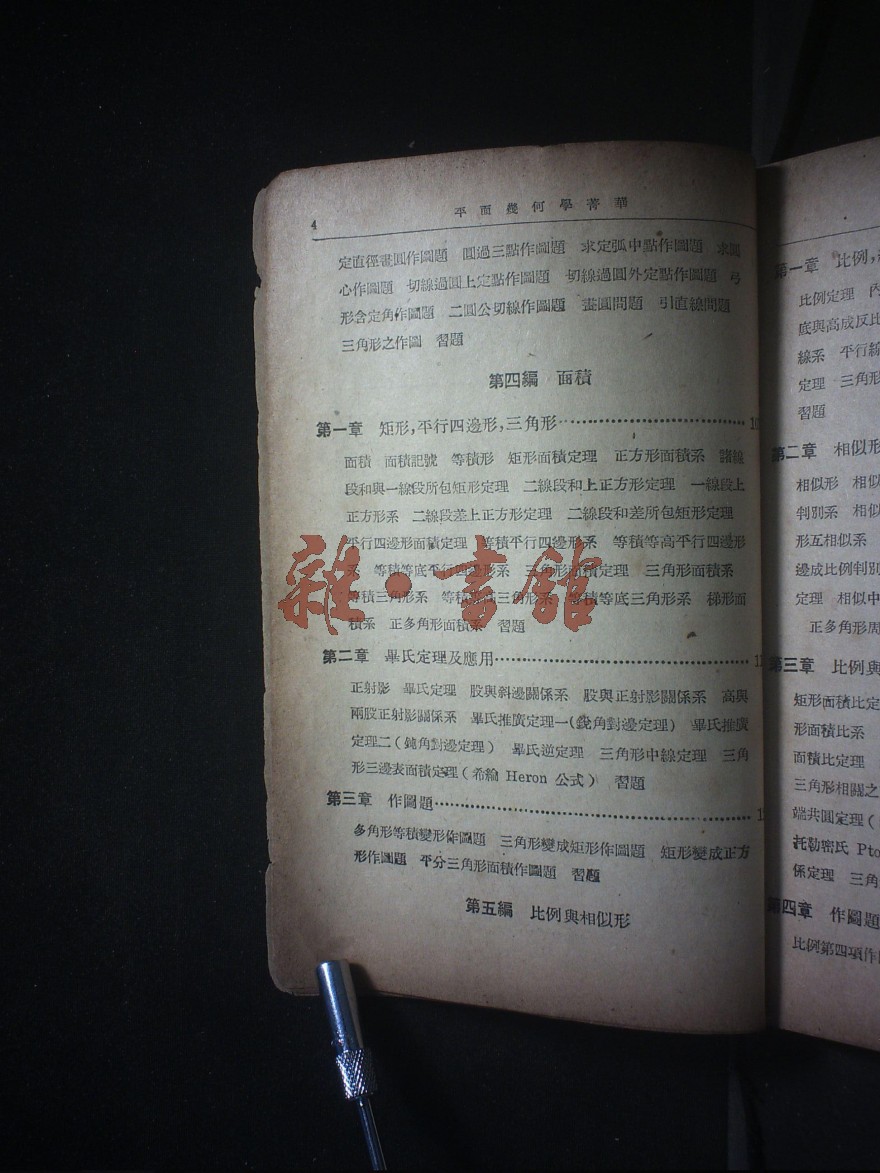 4
平面幾何學菁華
定直徑畫圓作圖題 圓過三點作圖題 求定弧中點作圖題 求圓
心作圖題 切線過圓上定點作圖題 切線過圓外定點作圖題 弓
形含定角作圖題 二圓公切線作圖題 畫圓問題 引直線問題
三角形之作圖 習題
第四編 面積
第一章 矩形,平行四邊形,三角形
面積 面積記號 等積形 矩形面積定理 正方形面積系 諸線
段和與一線段所包矩形定理 二線段和上正方形定理 一線段上
正方形系 二線段差上正方形定理 二線段和差所包矩形定理
平行四邊形面積定理 等積平行四邊形系 等積等高平行四邊形
系 等積等底平行四邊形系 三角形面積定理 三角形面積系
等積三角形系 等積等高三角形系 等積等底三角形系 梯形面
積系 正多角形面積系 習題
第二章 畢氏定理及應用
正射影 畢氏定理 股與斜邊關係系 股與正射影關係系 高與
兩股正射影關係系 畢氏推廣定理一(銳角對邊定理) 畢氏推廣
定理二(鈍角對邊定理) 畢氏逆定理 三角形中線定理 三角
形三邊表面積定理(希綸 Heron 公式) 習題
第三章 作圖題
多角形等積變形作圖題 三角形變成矩形作圖題 矩形變成正方
形作圖題 平分三角形面積作圖題 習題
第五編 比例與相似形
第一章 比例,
比例定理
底與高成反比
線系 平行線
定理 三角形
習題
第二章 相似形
相似形 相似
判別系 相似
形互相似系
邊成比例判別
定理 相似中
正多角形周
第三章 比例與
矩形面積比定
形面積比系
面積比定理
三角形相關之
端共圓定理(
托勒密氏 Pto
係定理 三角
第四章 作圖題
比例第四項作
雜·書館